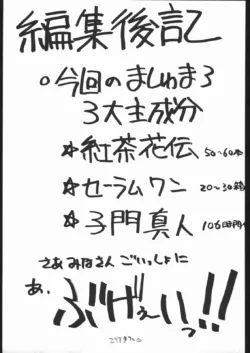 編集後記
○今回のましゅまろ
3大主成分
☆紅茶花伝 50~60本
☆セーラムワン 20~30箱
☆子門真人 106時間
さあ みなさん ごいっしょに
あ、
ぶげぇーいっ!!